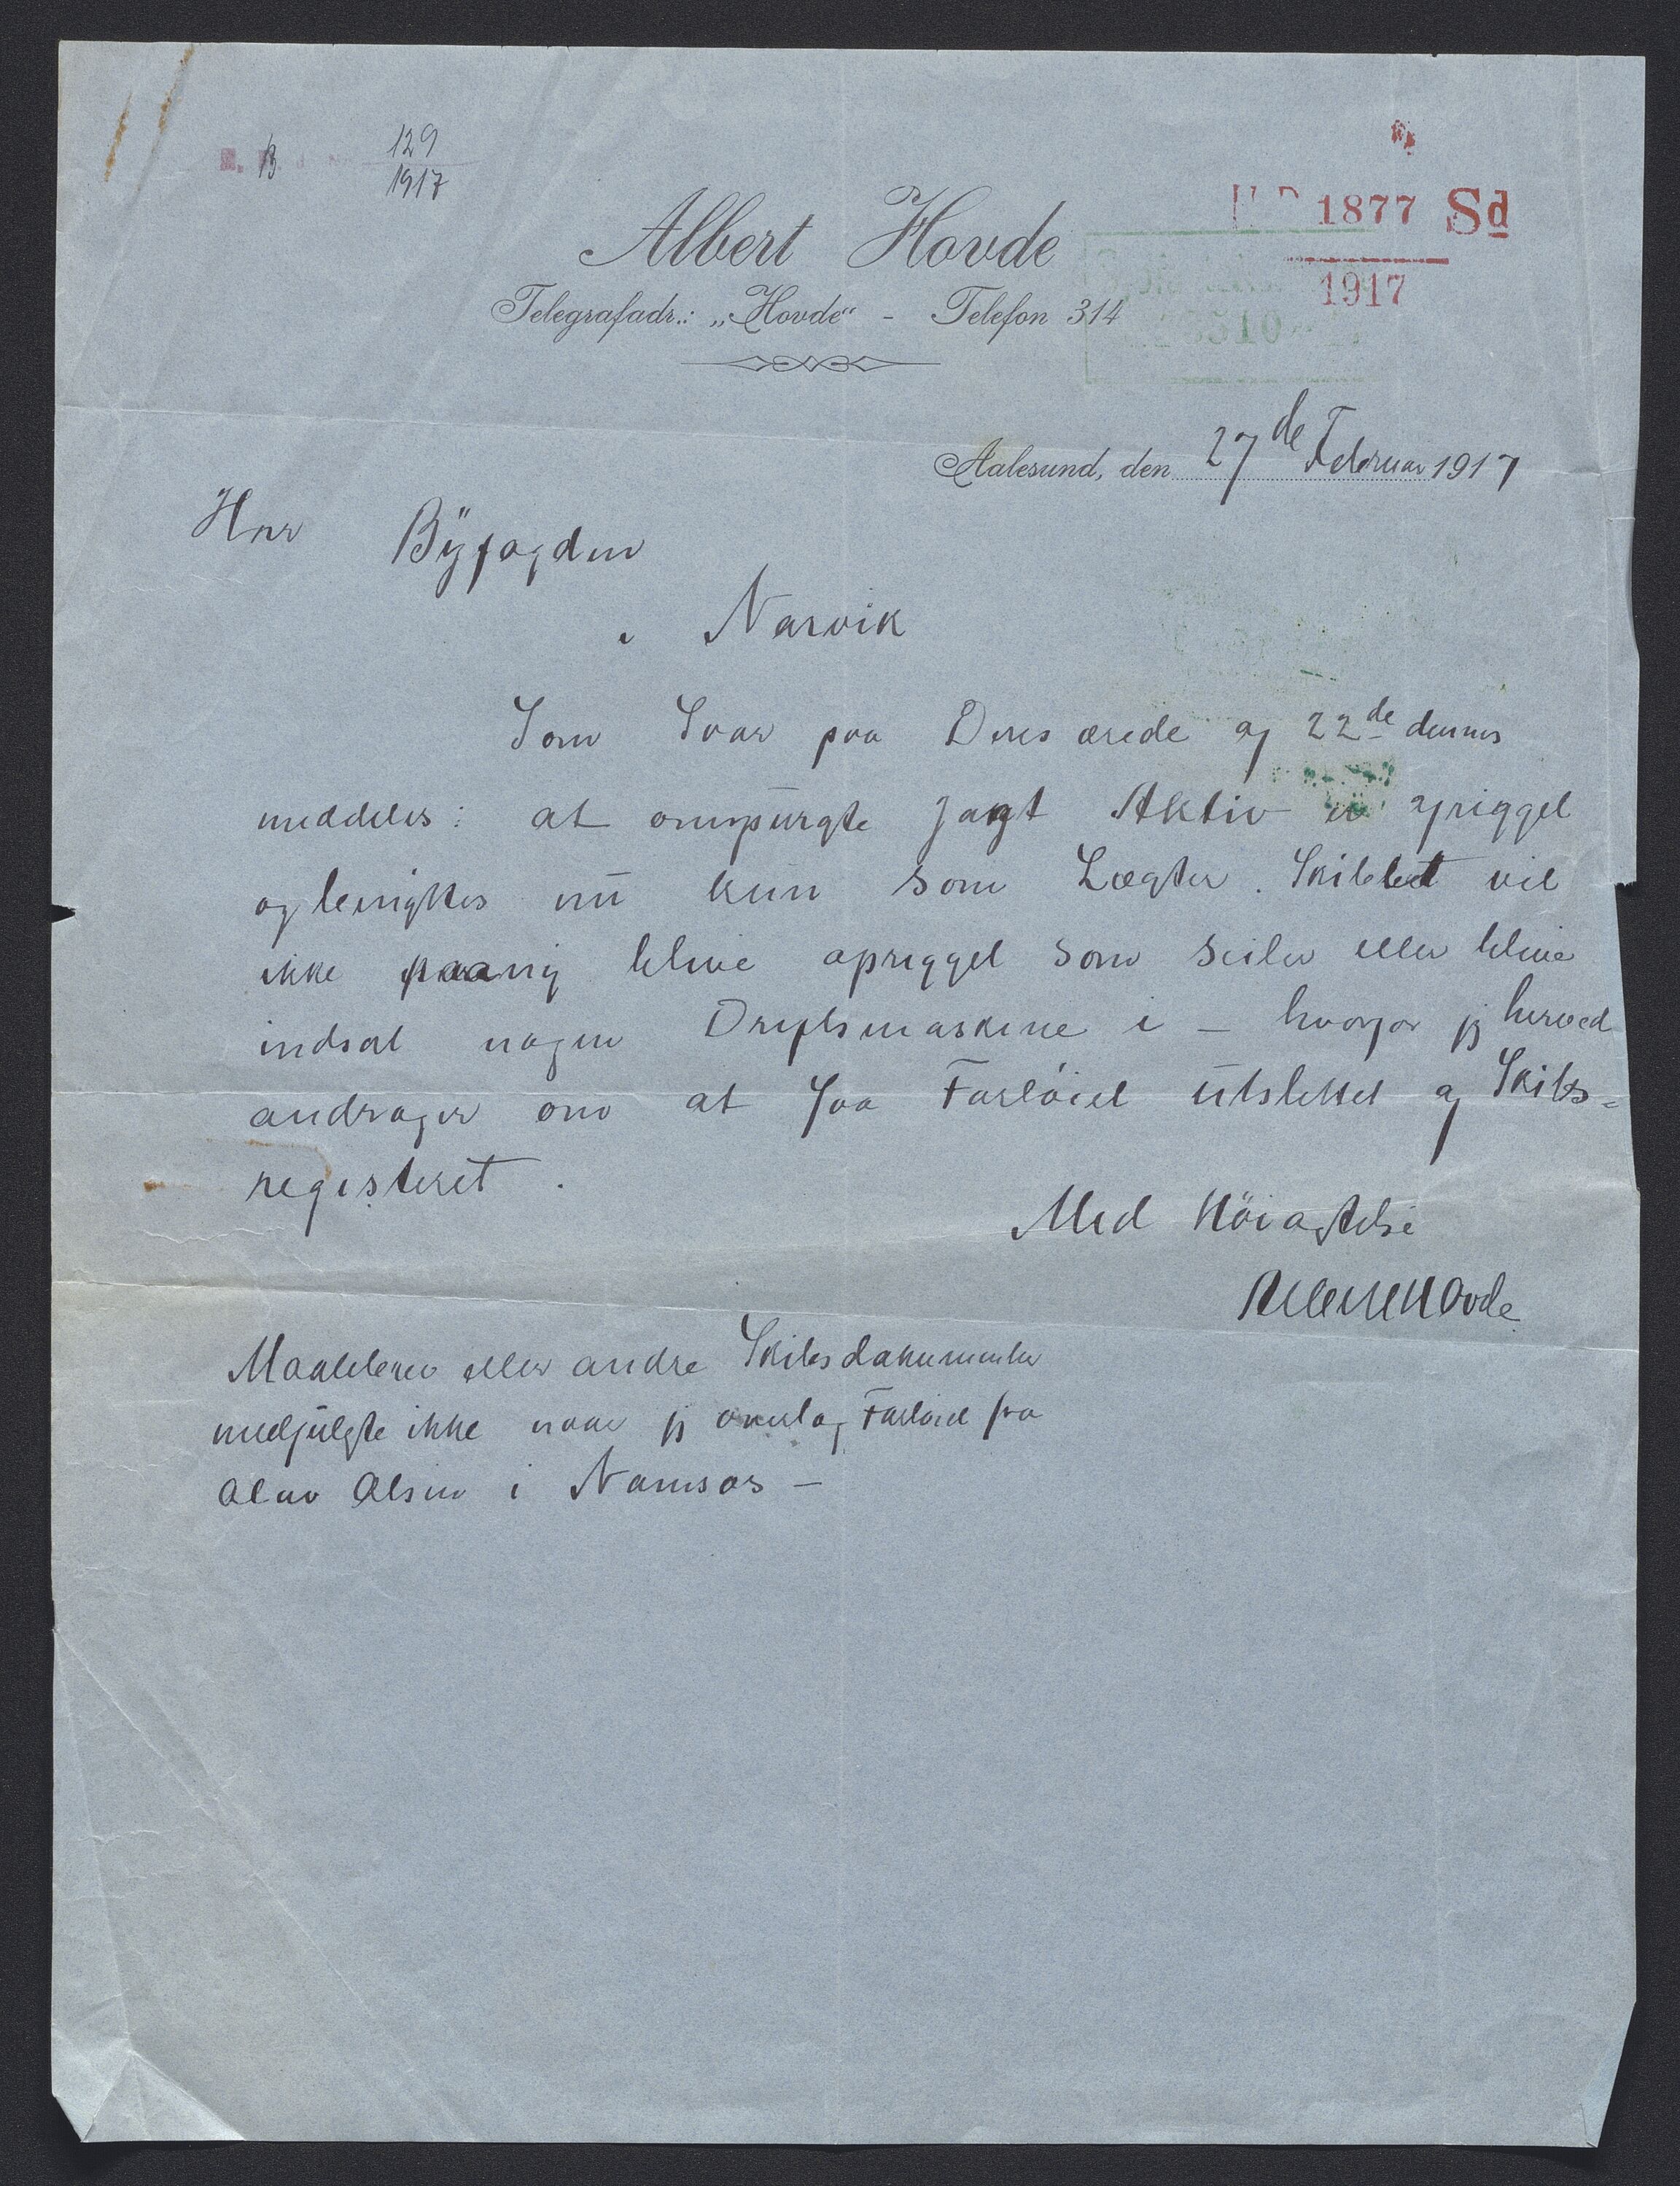 129
1917
1877 Sd
1917
Albert Hovde
Telegrafadr.: „Hovde“ - Telefon 314
Aalesund, den 27de Februar 1917
Herr Byfogden
i Narvik
Som Svar paa Deres ærede af 22de dennes
meddeles: at omspurgte Jagt Aktiv er afrigget
og benyttes nu kun som Lægter. Skibet vil
ikke paany blive oprigget som Seiler eller blive
indsat nogen Driftsmaskine i — hvorfor jeg herved
andrager om at faa Fartöiet utslettet af Skibs=
registeret.
Med Höiagtelse
Albert Hovde
Maalebrev eller andre Skibsdokumenter
medfulgte ikke naar jeg overtog Fartöiet fra
Olav Olsen i Namsos —